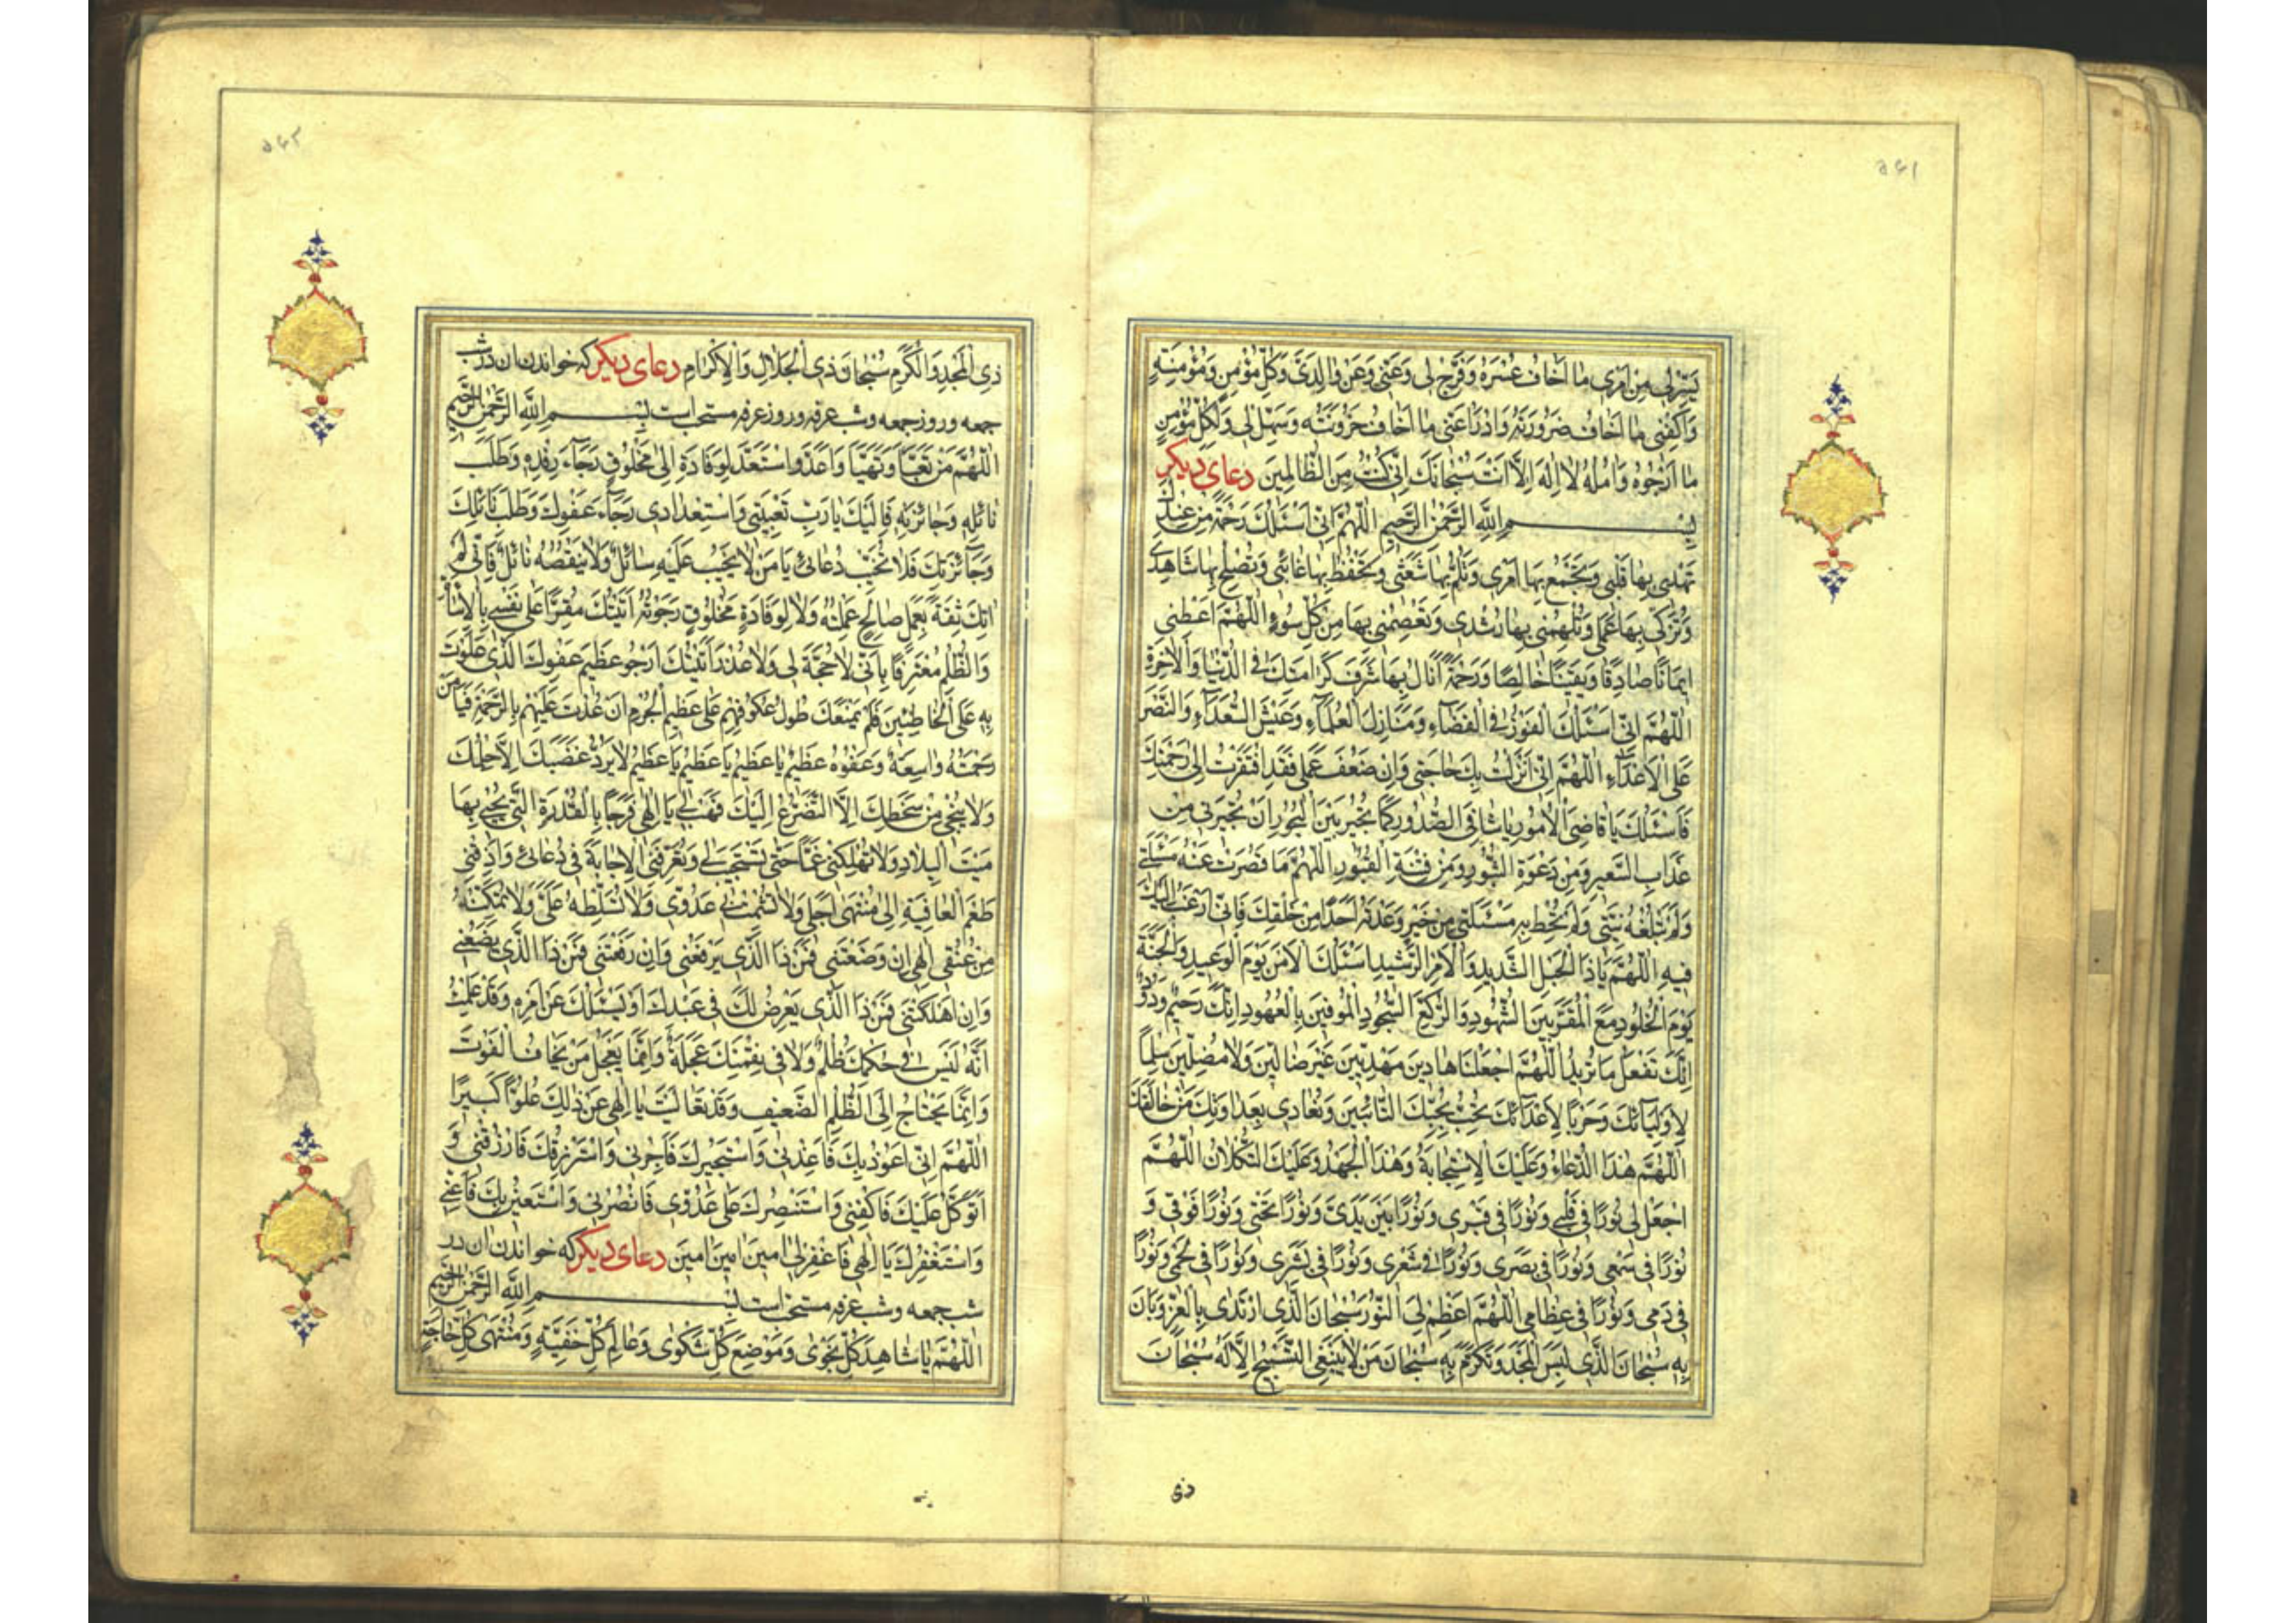 ۵۶۱
يَسِّرْلي مِنْ اَمْري ما اَخافُ عُسْرَهُ وَفَرِّجْ لي وَعَنّي وَعَنْ والِدَيَّ وَكُلِّ مُؤْمِنٍ وَمُؤْمِنَةٍ
وَاكْفِني ما اَخافُ ضَرُورَتَهُ وَادْرَأْ عَنّي ما اَخافُ حُزُونَتَهُ وَسَهِّلْ لي وَلِكُلِّ مُؤْمِنٍ
ما اَرْجُوهُ وَامُلُهُ لا اِلهَ اِلاّ اَنْتَ سُبْحانَكَ اِنّي كُنْتُ مِنَ الظّالِمينَ دعاى ديكر
بِسْمِ اللهِ الرَّحْمنِ الرَّحيمِ اَللّهُمَّ اِنّي اَسْئَلُكَ رَحْمَةً مِنْ عِنْدِكَ
تَهْدي بِها قَلْبي وَتَجْمَعُ بِها اَمْري وَتَلُمُّ بِها شَعَثي وَتَحْفَظُ بِها غائِبي وَتُصْلِحُ بِها شاهِدي
وَتُزَكّي بِها عَمَلي وَتُلْهِمُني بِها رُشْدي وَتَعْصِمُني بِها مِنْ كُلِّ سُوءٍ اَللّهُمَّ اَعْطِني
ايمانًا صادِقًا وَيَقينًا خالِصًا وَرَحْمَةً اَنالُ بِها شَرَفَ كَرامَتِكَ فِي الدُّنْيا وَالْاخِرَةِ
اَللّهُمَّ اِنّي اَسْئَلُكَ الْفَوْزَ فِي الْقَضاءِ وَمَنازِلَ الْعُلَماءِ وَعَيْشَ السُّعَداءِ وَالنَّصْرَ
عَلَى الْاَعْداءِ اَللّهُمَّ اِنّي اَنْزَلْتُ بِكَ حاجَتي وَاِنْ ضَعُفَ عَمَلي فَقَدِ افْتَقَرْتُ اِلى رَحْمَتِكَ
فَاَسْئَلُكَ يا قاضِيَ الْاُمُورِ يا شافِيَ الصُّدُورِ كَما تُجيرُ بَيْنَ الْبُحُورِ اَنْ تُجيرَني مِنْ
عَذابِ السَّعيرِ وَمِنْ دَعْوَةِ الثُّبُورِ وَمِنْ فِتْنَةِ الْقُبُورِ اَللّهُمَّ ما قَصُرَتْ عَنْهُ مَسْئَلَتي
وَلَمْ تَبْلُغْهُ نِيَّتي وَلَمْ تُحِطْ بِهِ مَسْئَلَتي مِنْ خَيْرٍ وَعَدْتَهُ اَحَدًا مِنْ خَلْقِكَ فَاِنّي اَرْغَبُ اِلَيْكَ
فيهِ اَللّهُمَّ يا ذَا الْحَبْلِ الشَّديدِ وَالْاَمْرِ الرَّشيدِ اَسْئَلُكَ الْاَمْنَ يَوْمَ الْوَعيدِ وَالْجَنَّةَ
يَوْمَ الْخُلُودِ مَعَ الْمُقَرَّبينَ الشُّهُودِ وَالرُّكَّعِ السُّجُودِ الْمُوفينَ بِالْعُهُودِ اِنَّكَ رَحيمٌ وَدُودٌ
اِنَّكَ تَفْعَلُ ما تُريدُ اَللّهُمَّ اجْعَلْنا هادينَ مَهْدِيّينَ غَيْرَ ضالّينَ وَلا مُضِلّينَ سِلْمًا
لِاَوْلِيائِكَ وَحَرْبًا لِاَعْدائِكَ نُحِبُّ بِحُبِّكَ التّائِبينَ وَنُعادي بِعَداوَتِكَ مَنْ خالَفَكَ
اَللّهُمَّ هذَا الدُّعاءُ وَعَلَيْكَ الْاِسْتِجابَةُ وَهذَا الْجَهْدُ وَعَلَيْكَ التُّكْلانُ اَللّهُمَّ
اجْعَلْ لي نُورًا في قَلْبي وَنُورًا في قَبْري وَنُورًا بَيْنَ يَدَيَّ وَنُورًا تَحْتي وَنُورًا فَوْقي وَ
نُورًا في سَمْعي وَنُورًا في بَصَري وَنُورًا في شَعْري وَنُورًا في بَشَري وَنُورًا في لَحْمي وَنُورًا
في دَمي وَنُورًا في عِظامي اَللّهُمَّ اَعْظِمْ لِيَ النُّورَ سُبْحانَ الَّذي ارْتَدى بِالْعِزِّ وَبانَ
بِهِ سُبْحانَ الَّذي لَبِسَ الْمَجْدَ وَتَكَرَّمَ بِهِ سُبْحانَ مَنْ لا يَنْبَغِي التَّسْبيحُ اِلاّ لَهُ سُبْحانَ
ذى
۵۶۲
ذِي الْمَجْدِ وَالْكَرَمِ سُبْحانَ ذِي الْجَلالِ وَالْاِكْرامِ دعاى ديكر كه خواندن ان در شب
جمعه و روز جمعه وشب عرفه وروز عرفه مستحب است بِسْمِ اللهِ الرَّحْمنِ الرَّحيمِ
اَللّهُمَّ مَنْ تَعَبَّأَ وَتَهَيَّأَ وَاَعَدَّ وَاسْتَعَدَّ لِوِفادَةٍ اِلى مَخْلُوقٍ رَجاءَ رِفْدِهِ وَطَلَبَ
نائِلِهِ وَجائِزَتِهِ فَاِلَيْكَ يا رَبِّ تَعْبِيَتي وَاسْتِعْدادي رَجاءَ عَفْوِكَ وَطَلَبَ نائِلِكَ
وَجائِزَتِكَ فَلا تُخَيِّبْ دُعائي يا مَنْ لا يَخيبُ عَلَيْهِ سائِلٌ وَلا يَنْقُصُهُ نائِلٌ فَاِنّي لَمْ
اتِكَ ثِقَةً بِعَمَلٍ صالِحٍ عَمِلْتُهُ وَلا لِوِفادَةِ مَخْلُوقٍ رَجَوْتُهُ اَتَيْتُكَ مُقِرًّا عَلى نَفْسي بِالْاِساءَةِ
وَالظُّلْمِ مُعْتَرِفًا بِاَنّي لا حُجَّةَ لي وَلا عُذْرَ اَتَيْتُكَ اَرْجُو عَظيمَ عَفْوِكَ الَّذي عَلَوْتَ
بِهِ عَلَى الْخاطِئينَ فَلَمْ يَمْنَعْكَ طُولُ عُكُوفِهِمْ عَلى عَظيمِ الْجُرْمِ اَنْ عُدْتَ عَلَيْهِمْ بِالرَّحْمَةِ فَيا مَنْ
رَحْمَتُهُ واسِعَةٌ وَعَفْوُهُ عَظيمٌ يا عَظيمُ يا عَظيمُ يا عَظيمُ لا يَرُدُّ غَضَبَكَ اِلاّ حِلْمُكَ
وَلا يُنْجي مِنْ سَخَطِكَ اِلاَّ التَّضَرُّعُ اِلَيْكَ فَهَبْ لي يا اِلهي فَرَجًا بِالْقُدْرَةِ الَّتي تُحْيي بِها
مَيْتَ الْبِلادِ وَلا تُهْلِكْني غَمًّا حَتّى تَسْتَجيبَ لي وَتُعَرِّفَنِي الْاِجابَةَ في دُعائي وَاَذِقْني
طَعْمَ الْعافِيَةِ اِلى مُنْتَهى اَجَلي وَلا تُشْمِتْ بي عَدُوّي وَلا تُسَلِّطْهُ عَلَيَّ وَلا تُمَكِّنْهُ
مِنْ عُنُقي اِلهي اِنْ وَضَعْتَني فَمَنْ ذَا الَّذي يَرْفَعُني وَاِنْ رَفَعْتَني فَمَنْ ذَا الَّذي يَضَعُني
وَاِنْ اَهْلَكْتَني فَمَنْ ذَا الَّذي يَعْرِضُ لَكَ في عَبْدِكَ اَوْ يَسْئَلُكَ عَنْ اَمْرِهِ وَقَدْ عَلِمْتُ
اَنَّهُ لَيْسَ في حُكْمِكَ ظُلْمٌ وَلا في نِقْمَتِكَ عَجَلَةٌ وَاِنَّما يَعْجَلُ مَنْ يَخافُ الْفَوْتَ
وَاِنَّما يَحْتاجُ اِلَى الظُّلْمِ الضَّعيفُ وَقَدْ تَعالَيْتَ يا اِلهي عَنْ ذلِكَ عُلُوًّا كَبيرًا
اَللّهُمَّ اِنّي اَعُوذُ بِكَ فَاَعِذْني وَاَسْتَجيرُكَ فَاَجِرْني وَاَسْتَرْزِقُكَ فَارْزُقْني وَ
اَتَوَكَّلُ عَلَيْكَ فَاكْفِني وَاَسْتَنْصِرُكَ عَلى عَدُوّي فَانْصُرْني وَاَسْتَعينُ بِكَ فَاَعِنّي
وَاَسْتَغْفِرُكَ يا اِلهي فَاغْفِرْلي امينَ امينَ امينَ دعاى ديكر كه خواندن ان در
شب جمعه وشب عرفه مستحب است بِسْمِ اللهِ الرَّحْمنِ الرَّحيمِ
اَللّهُمَّ يا شاهِدَ كُلِّ نَجْوى وَمَوْضِعَ كُلِّ شَكْوى وَعالِمَ كُلِّ خَفِيَّةٍ وَمُنْتَهى كُلِّ حاجَةٍ